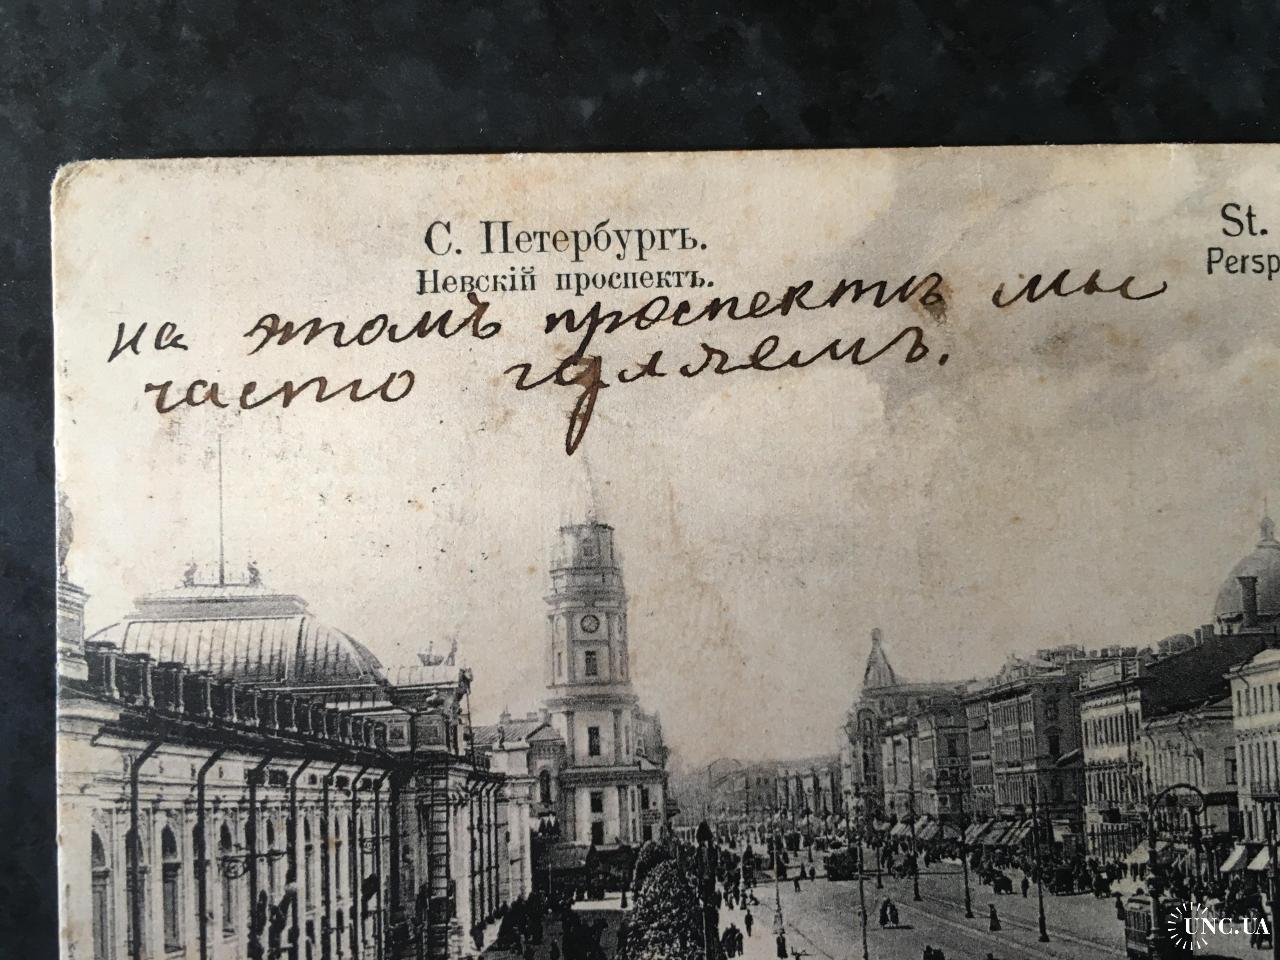 С. Петербургъ.
St.
Невскій проспектъ.
Persp
на этомъ проспектѣ мы
часто гуляемъ.
UNC.UA